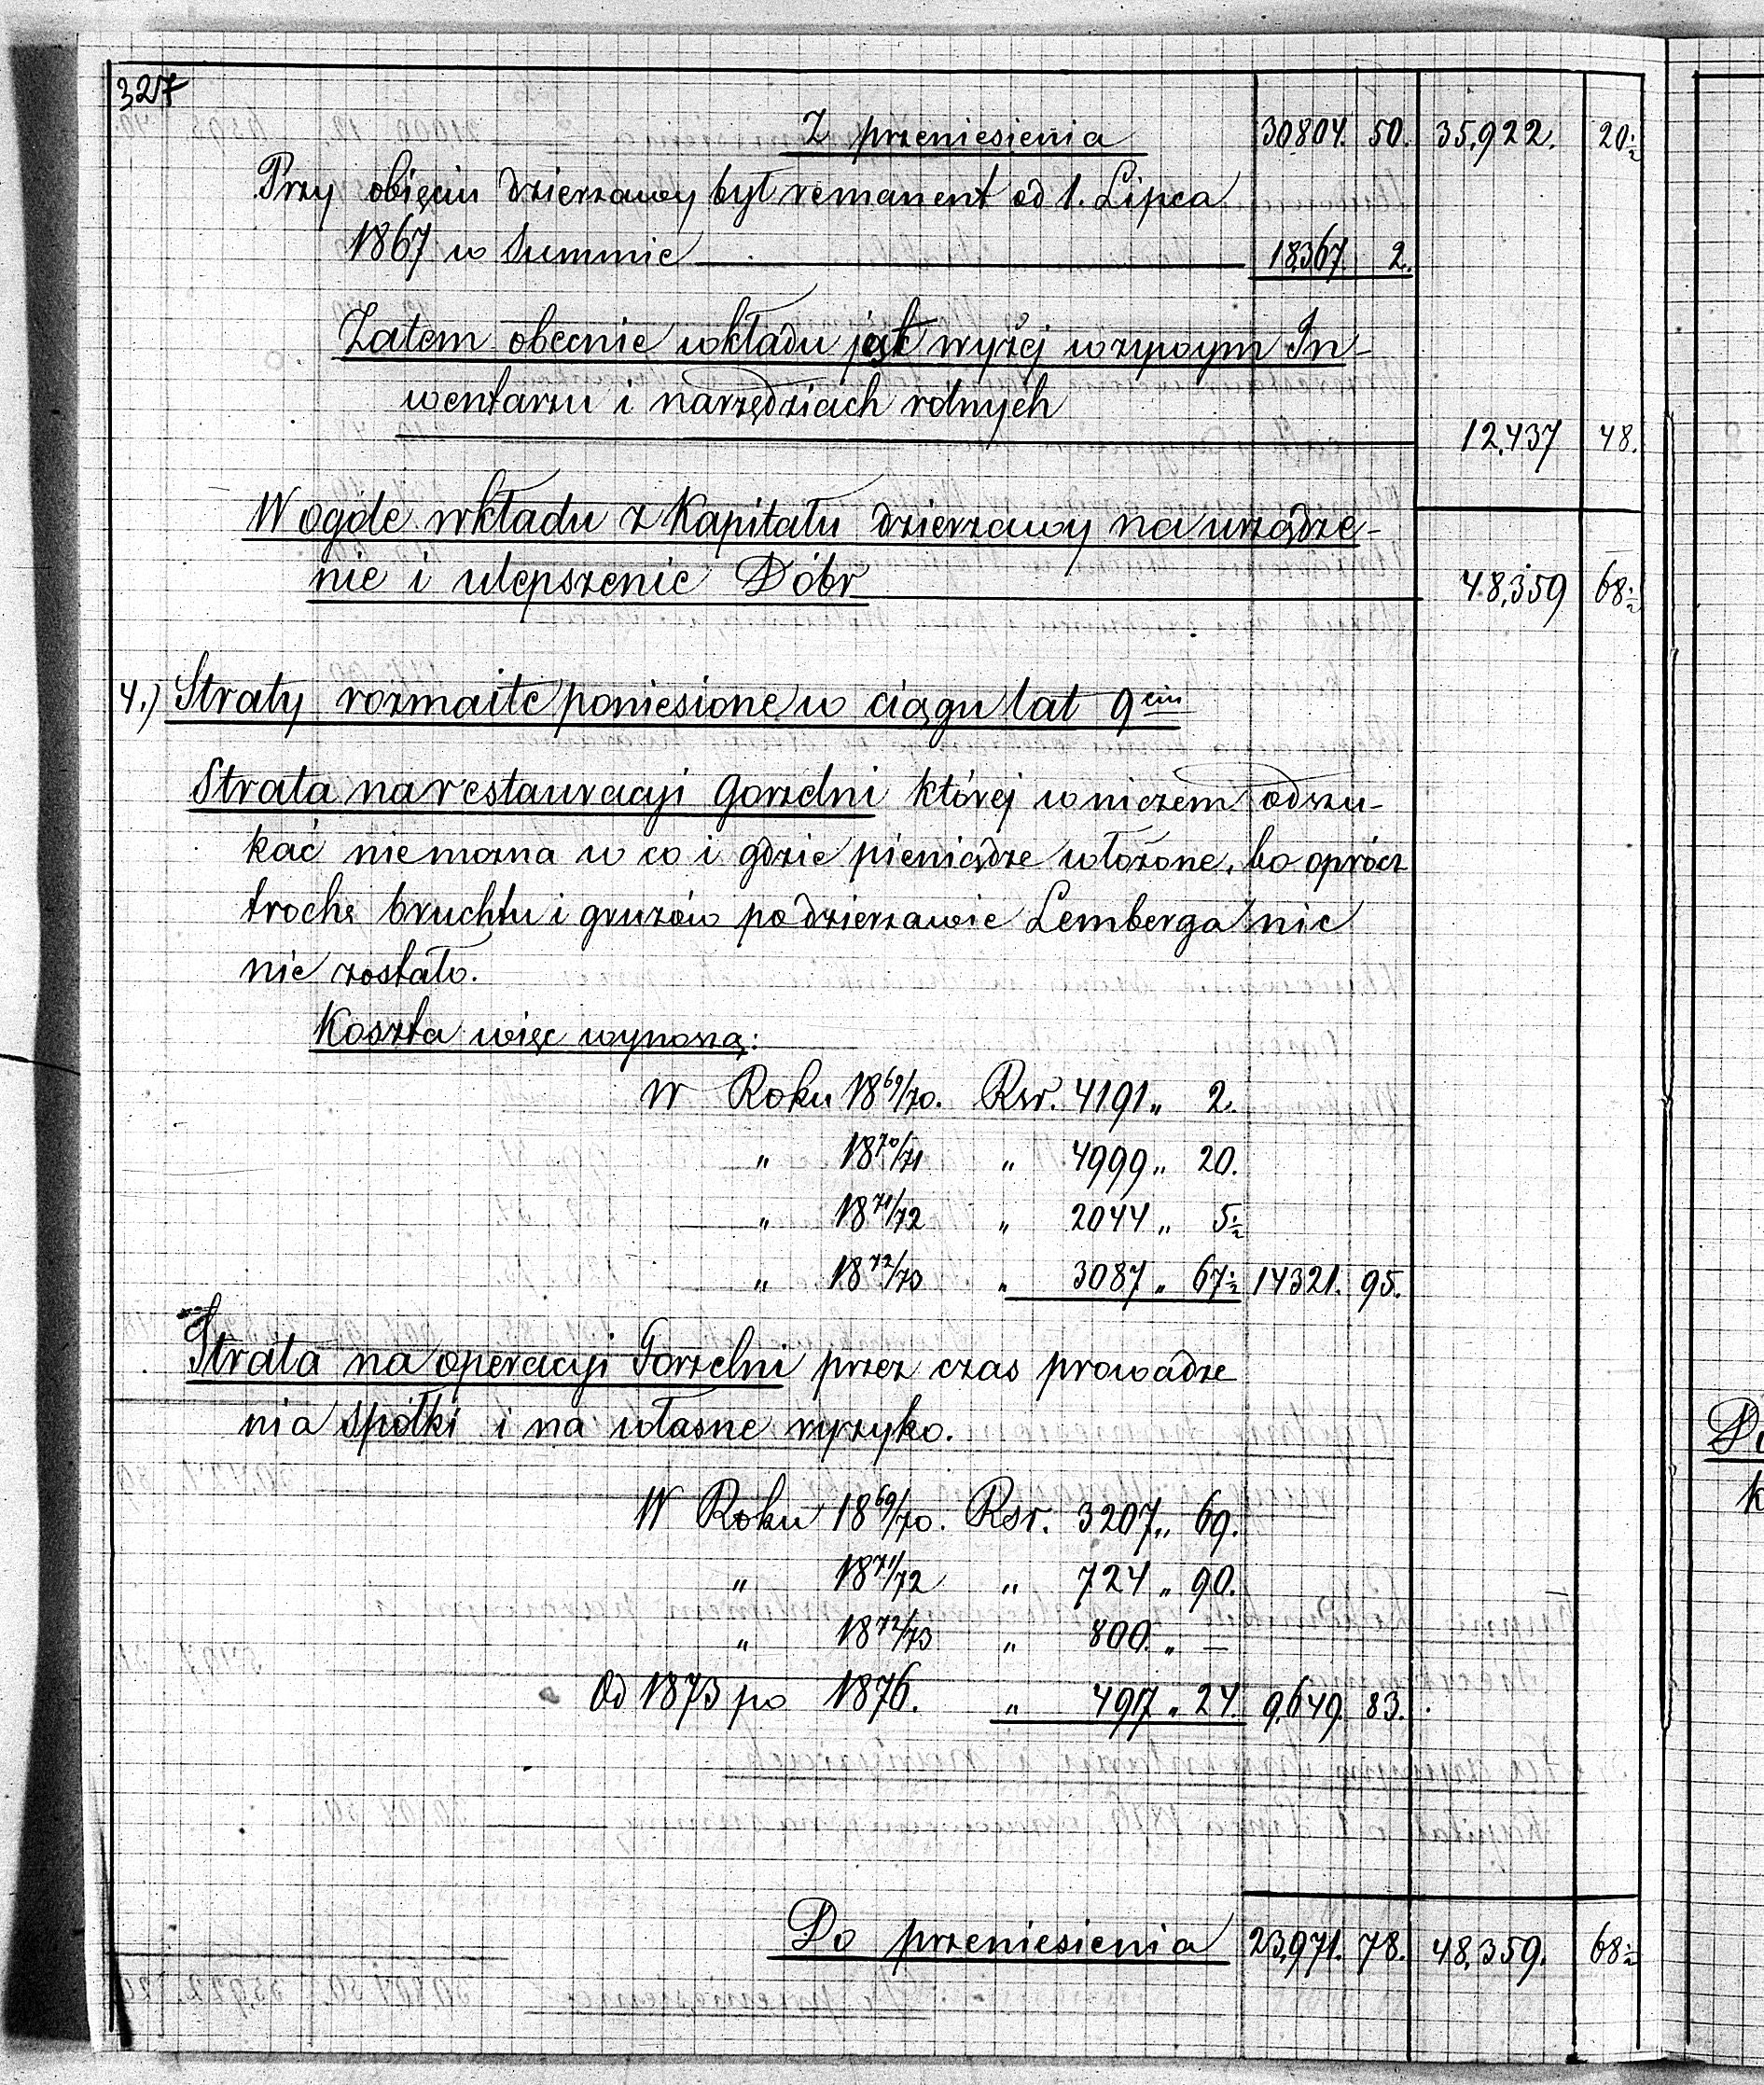 327
Z przeniesienia 30804. 50. 35,922. 20½
Przy obięciu dzierzawy był remanent od 1. Lipca
1867 w Summie 18367. 2.
Zatem obecnie wkładu jest wyżej w zywym In-
wentarzu i narzędziach rolnych
12,437 48.
W ogóle wkładu z Kapitału dzierzawy na urządze-
nie i ulepszenie Dóbr 48,359 68½
4.) Straty rozmaite poniesione w ciągu lat 9ciu
Strata na restauracyi Gorzelni której w niczem odszu-
kać niemozna w co i gdzie pieniądze włozone, bo oprócz
trochę bruchtu i gruzów po dzierzawie Lemberga nic
nie zostało.
Koszta więc wynoszą:
W Roku 1869/70. Rsr. 4191 „ 2.
„ 1870/71 „ 4999 „ 20.
„ 1871/72 „ 2044 „ 5½
„ 1872/73 „ 3087 „ 67½ 14321. 95.
Strata na operacyi Gorzelni przez czas prowadze
nia Spółki i na własne ryzyko.
W Roku 1869/70. Rsr. 3207 „ 69.
„ 1871/72 „ 724 „ 90.
„ 1872/73 „ 800 „ —
Od 1873 po 1876. „ 4917 „ 24. 9,649. 83.
Do przeniesienia 23,971. 78. 48,359. 68½